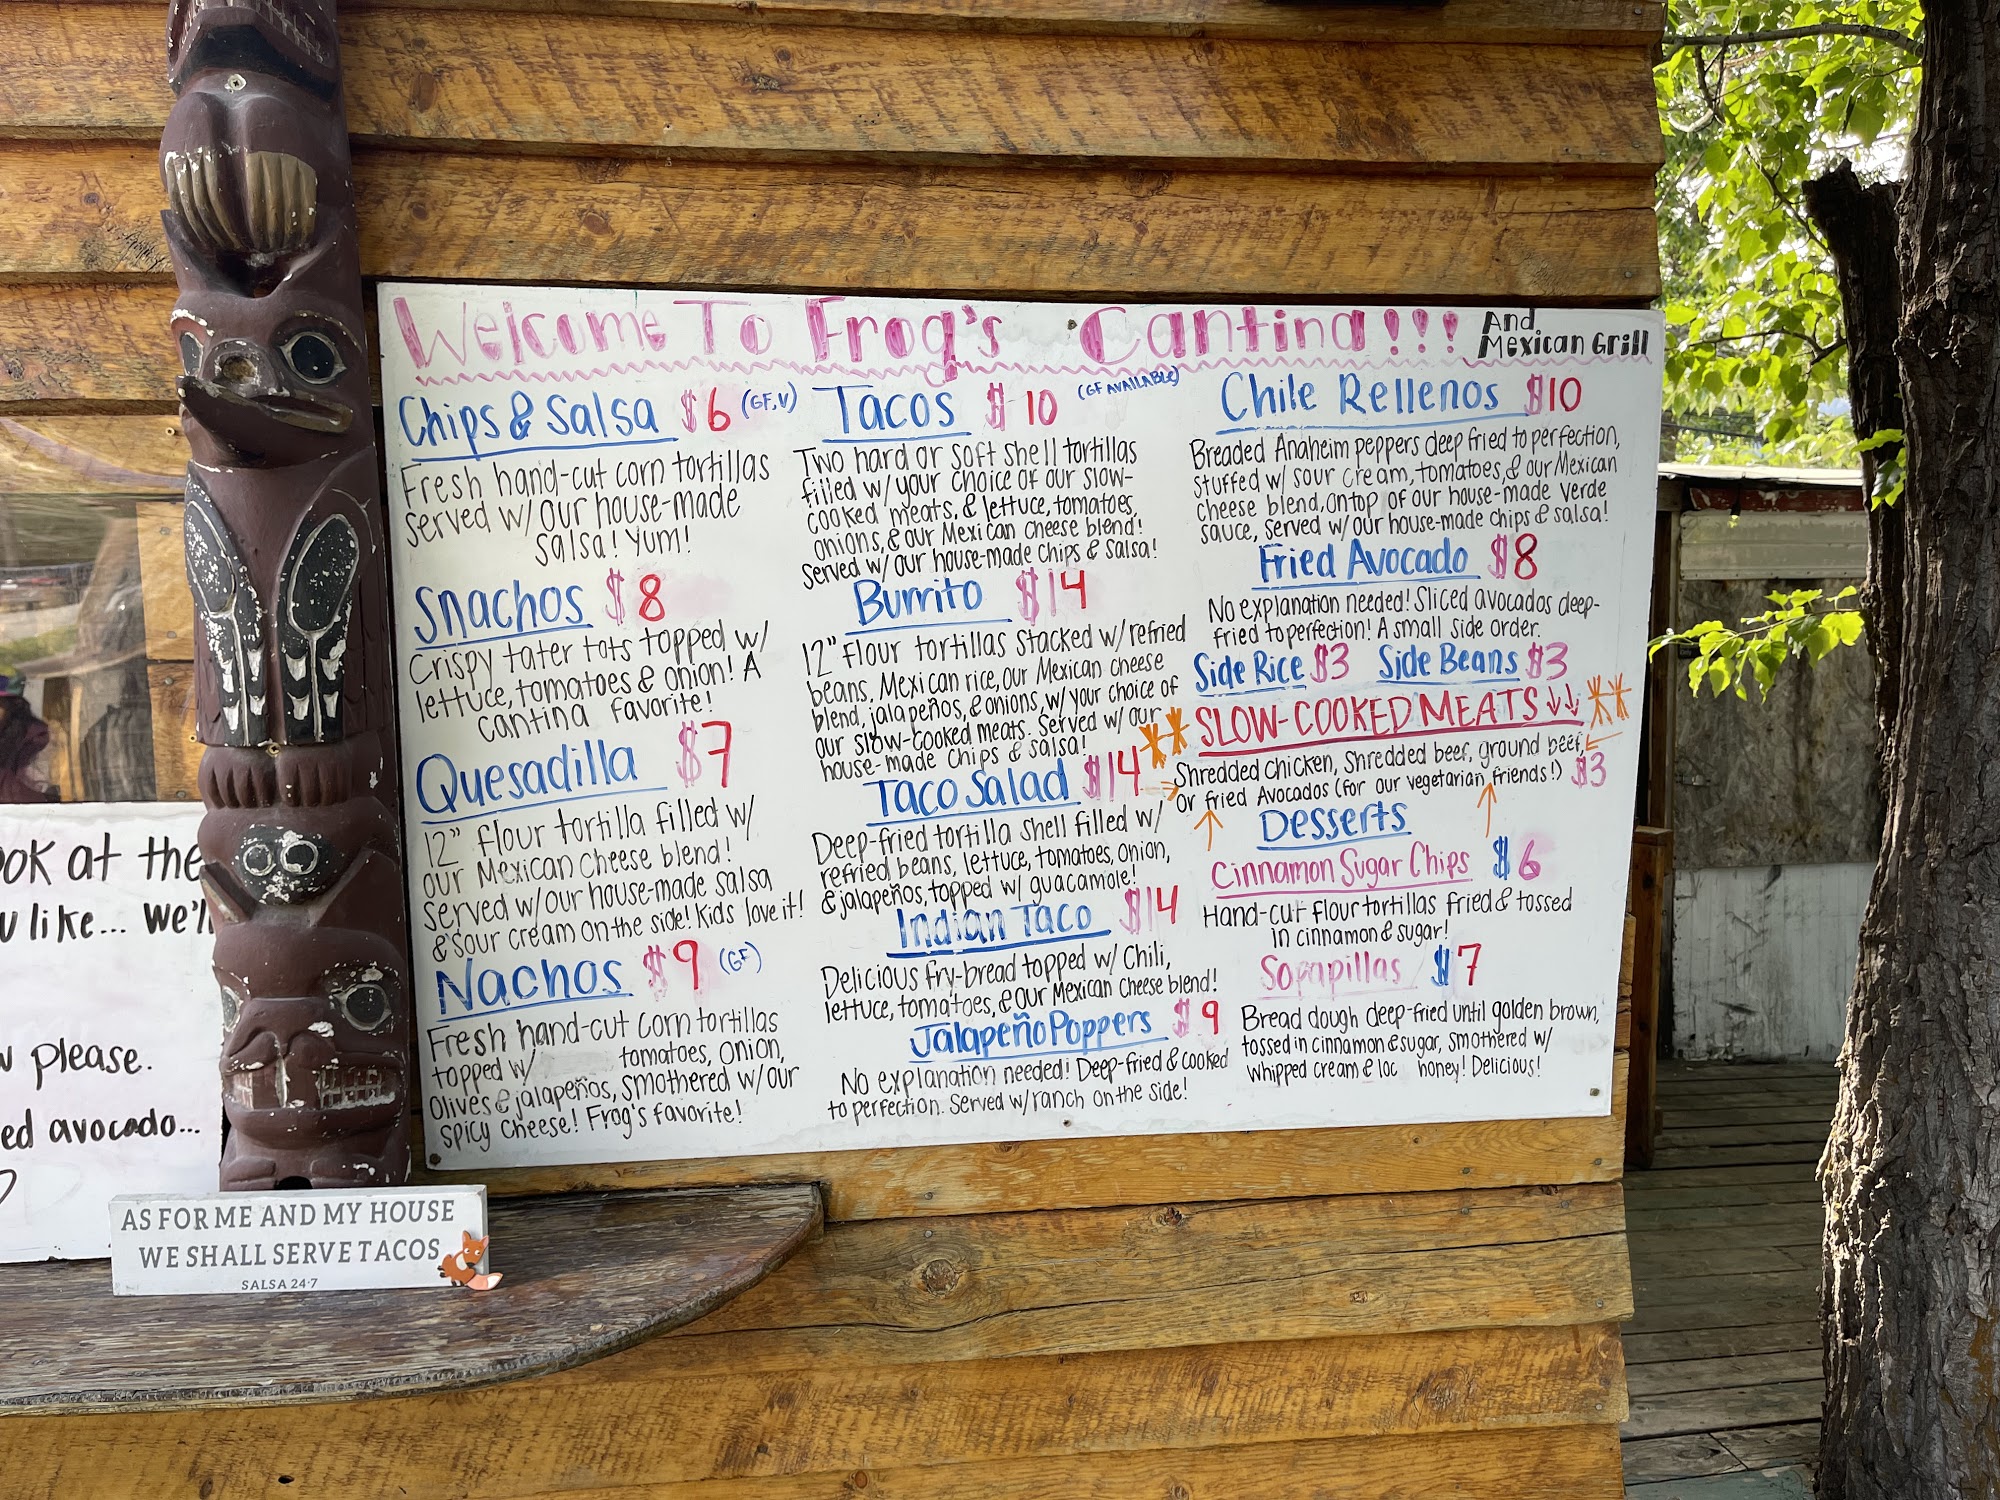 Welcome To Frog's Cantina!!! And Mexican Grill
Chips & Salsa $6 (GF,V)
Fresh hand-cut corn tortillas
served w/ our house-made
salsa! Yum!
Snachos $8
Crispy tater tots topped w/
lettuce, tomatoes & onion! A
cantina favorite!
Quesadilla $7
12" flour tortilla filled w/
our Mexican cheese blend!
served w/our house-made salsa
& sour cream on the side! Kids love it!
Nachos $9 (GF)
Fresh hand-cut corn tortillas
topped w/ tomatoes, onion,
olives & jalapeños, smothered w/our
spicy cheese! Frog's favorite!
Tacos $10 (GF AVAILABLE)
Two hard or soft shell tortillas
filled w/ your choice of our slow-
cooked meats, & lettuce, tomatoes,
onions, & our Mexican cheese blend!
Served w/ our house-made chips & salsa!
Burrito $14
12" flour tortillas stacked w/ refried
beans, Mexican rice, our Mexican cheese
blend, jalapeños, & onions, w/ your choice of
our slow-cooked meats. Served w/ our
house-made chips & salsa!
Taco Salad $14
Deep-fried tortilla shell filled w/
refried beans, lettuce, tomatoes, onion,
& jalapeños, topped w/ guacamole!
Indian Taco $14
Delicious fry-bread topped w/ Chili,
lettuce, tomatoes, & our Mexican cheese blend!
Jalapeño Poppers $9
No explanation needed! Deep-fried & cooked
to perfection. Served w/ ranch on the side!
Chile Rellenos $10
Breaded Anaheim peppers deep fried to perfection,
stuffed w/ sour cream, tomatoes, & our Mexican
cheese blend, on top of our house-made verde
sauce, served w/ our house-made chips & salsa!
Fried Avocado $8
No explanation needed! Sliced avocados deep-
fried to perfection! A small side order.
Side Rice $3 Side Beans $3
SLOW-COOKED MEATS
Shredded chicken, Shredded beef, ground beef,
or fried Avocados (for our vegetarian friends!) $3
Desserts
Cinnamon Sugar Chips $6
Hand-cut flour tortillas fried & tossed
in cinnamon & sugar!
Sopapillas $7
Bread dough deep-fried until golden brown,
tossed in cinnamon & sugar, smothered w/
whipped cream & loc honey! Delicious!
ook at the
u like... we'll
w please.
ed avocado...
AS FOR ME AND MY HOUSE
WE SHALL SERVE TACOS
SALSA 24·7